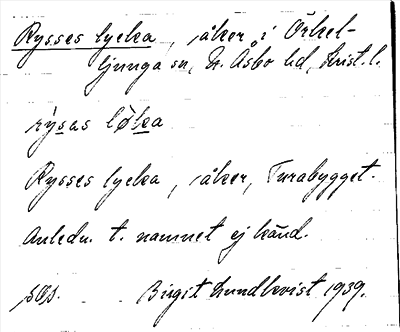 Rysses lycka, åker i Örkel-
ljunga sn, N. Åsbo hd, Krist. l.
rysas løka
Rysses lycka, åker, Turabygget.
Anledn. t. namnet ej känd.
Birgit Lundkvist 1939.